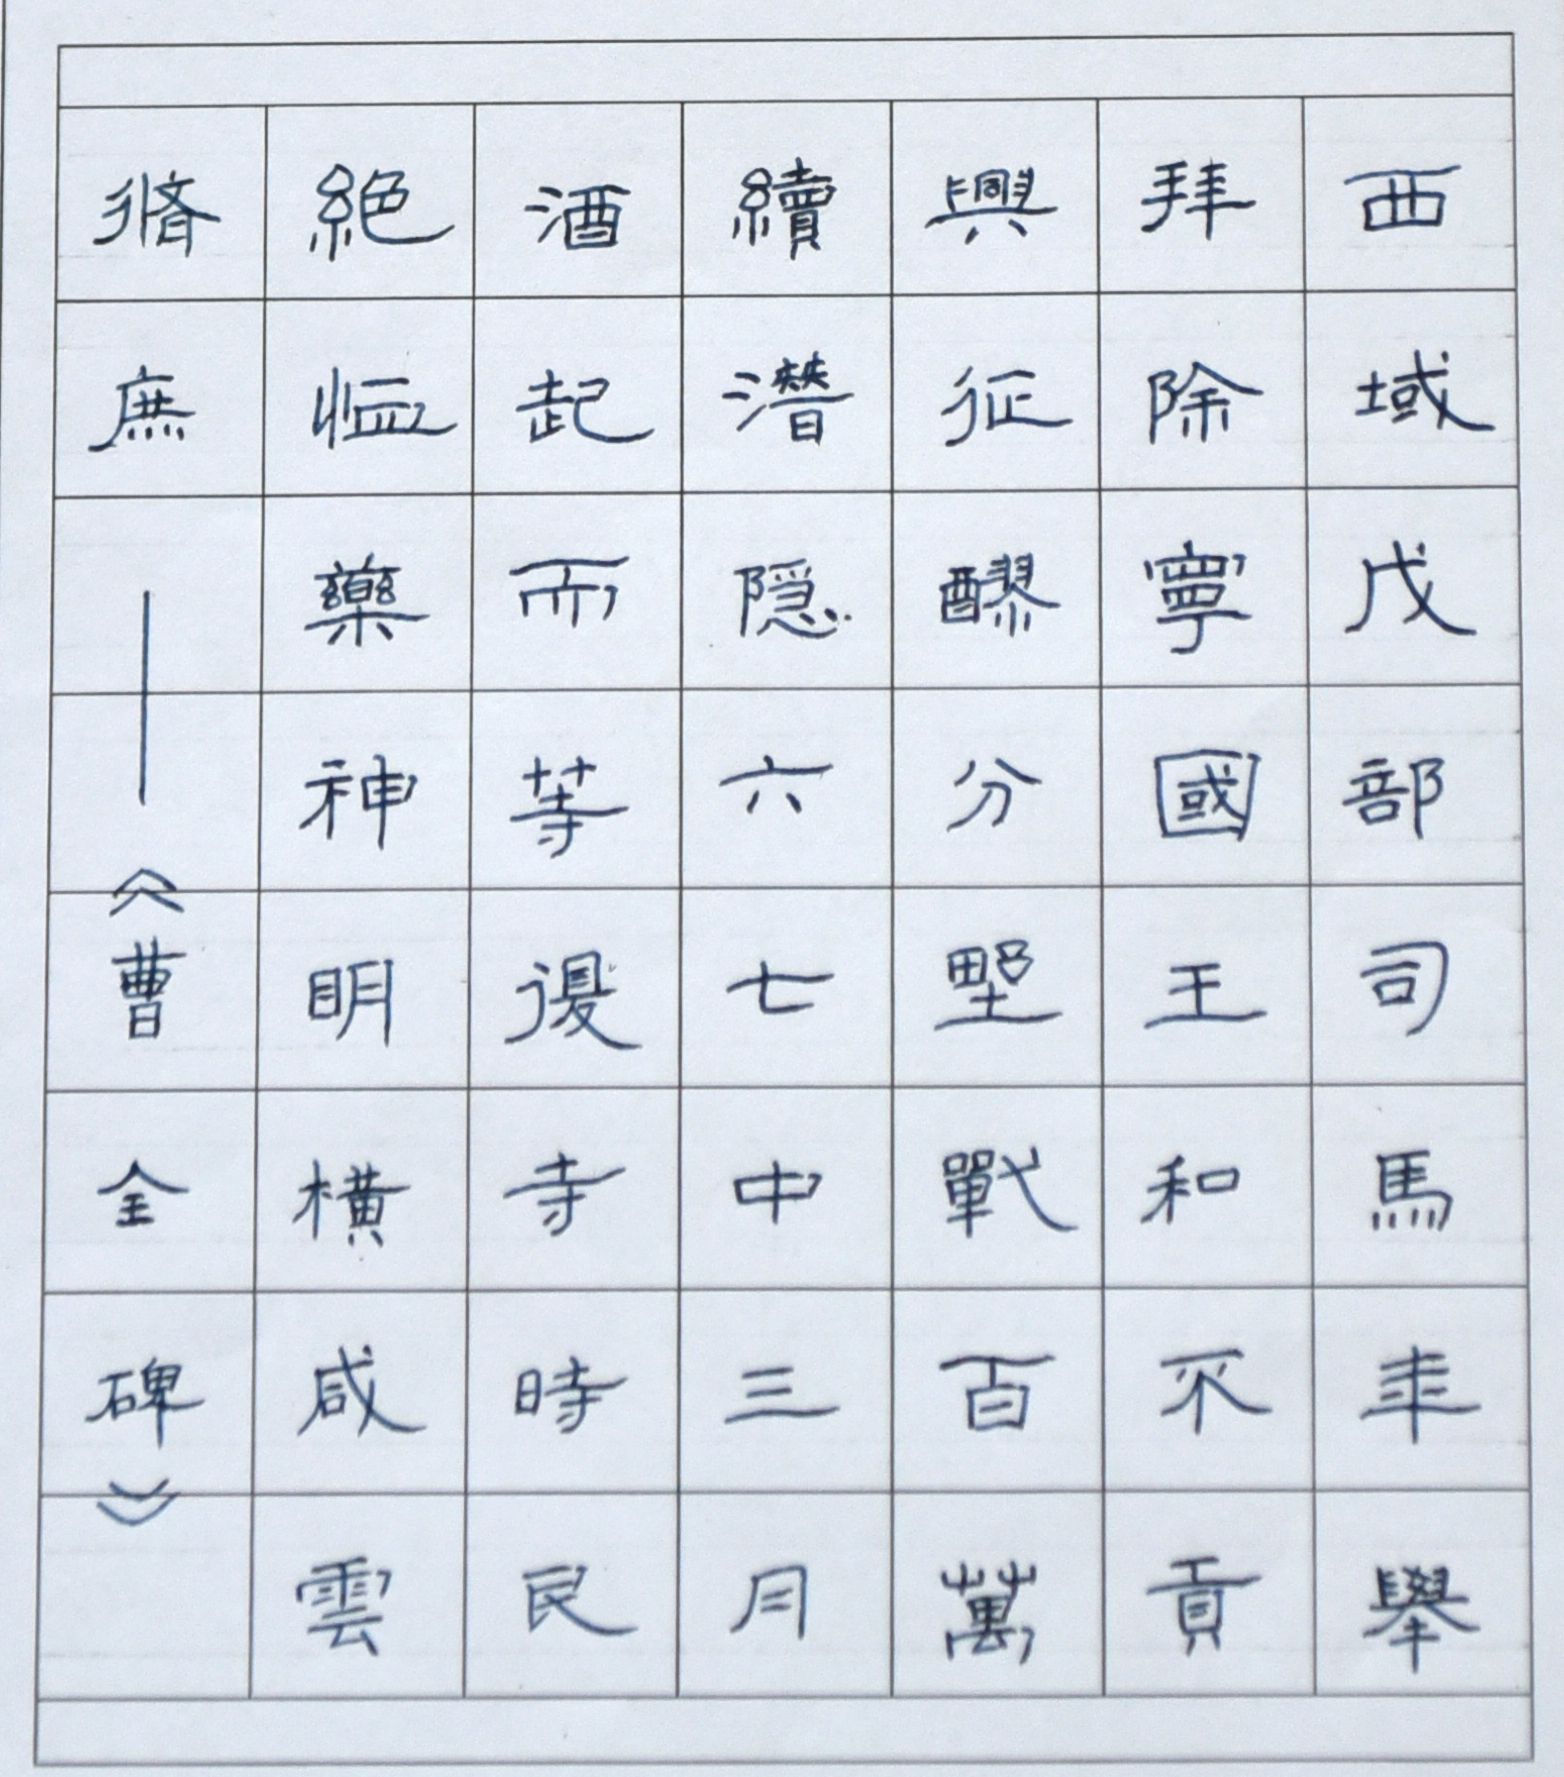 西域戊部司馬年舉
拜除寧國王和不貢
興征醪分墅戰百萬
續潛隱六七中三月
酒起而等復寺時艮
絕恤藥神明橫咸雲
脩庶——《曹
全碑》